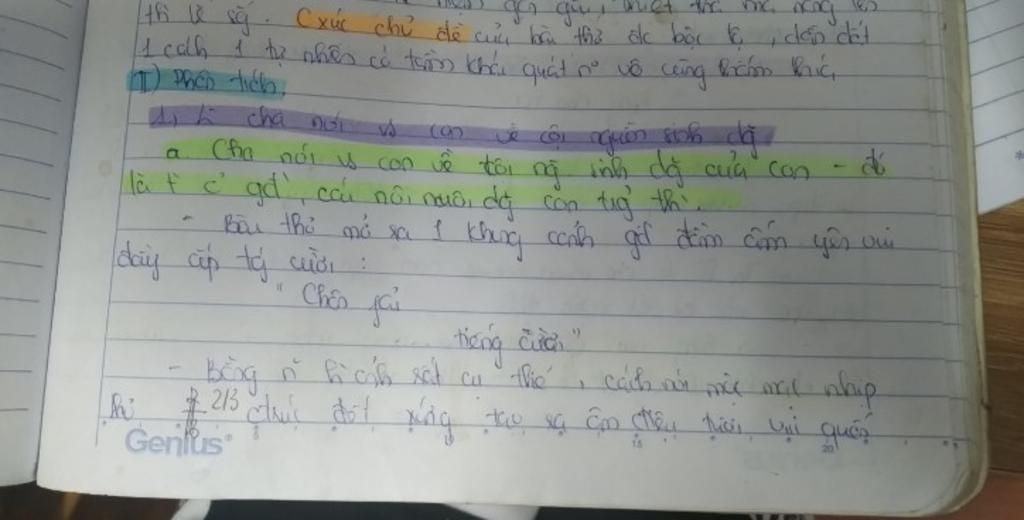 gần gũi,
thì lẽ sống. Cxúc chủ đề của bài thơ đc bộc lộ, dẫn dắt
1 cách 1 tự nhiên có tầm khái quát nº vô cùng thấm thía,
II) Phân tích
1, cha nói vs con về cội nguồn sinh dg
a. Cha nói vs con về tội ng sinh dg của con - đó
là t c' gđ', cái nôi nuôi dg con tự thì.
- Bài thơ mở ra 1 khung cảnh gđ đầm ấm yên vui
đầy ắp tg cười :
" Chân phải
tiếng cười"
- Bằng n h cảnh rất cụ thể, cách nói mộc mạc nhịp
2/3 đột xứng tạo ra âm điệu tươi vui quấn
Genius
15
20